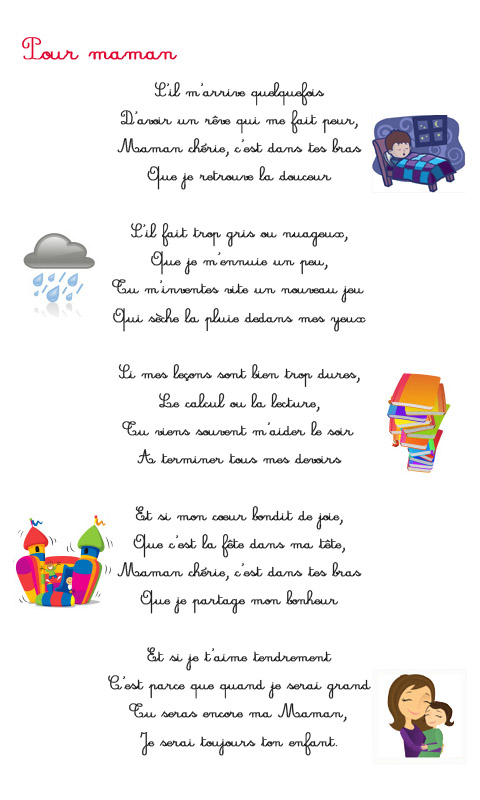 Pour maman
S'il m'arrive quelquefois
D'avoir un rêve qui me fait peur,
Maman chérie, c'est dans tes bras
Que je retrouve la douceur
S'il fait trop gris ou nuageux,
Que je m'ennuie un peu,
Tu m'inventes vite un nouveau jeu
Qui sèche la pluie dedans mes yeux
Si mes leçons sont bien trop dures,
Le calcul ou la lecture,
Tu viens souvent m'aider le soir
A terminer tous mes devoirs
Et si mon cœur bondit de joie,
Que c'est la fête dans ma tête,
Maman chérie, c'est dans tes bras
Que je partage mon bonheur
Et si je t'aime tendrement
C'est parce que quand je serai grand
Tu seras encore ma Maman,
Je serai toujours ton enfant.